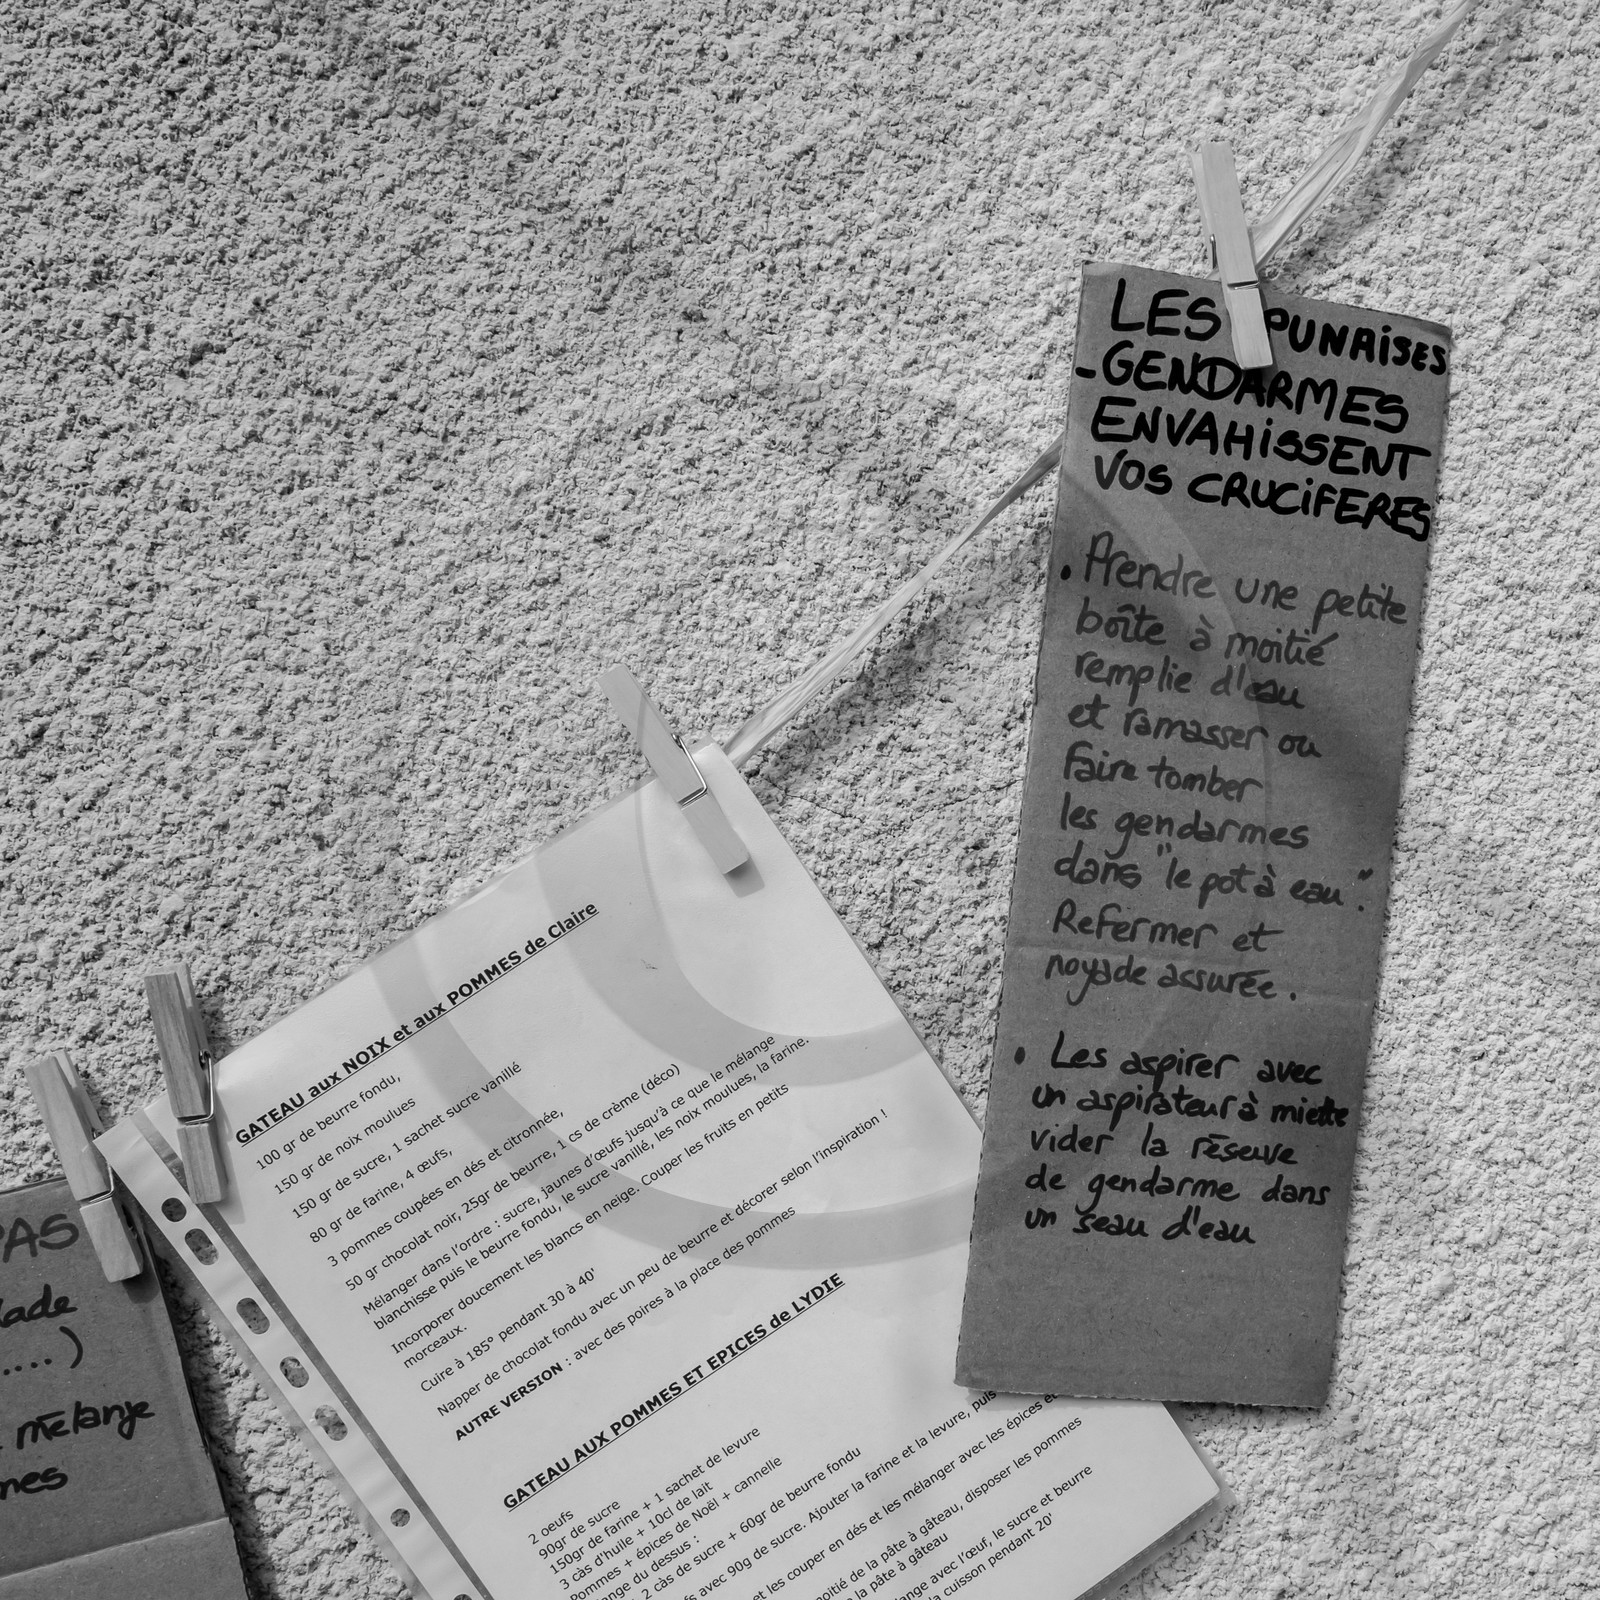 LES PUNAISES
-GENDARMES
ENVAHISSENT
VOS CRUCIFERES
. Prendre une petite
boîte à moitié
remplie d'eau
et ramasser ou
faire tomber
les gendarmes
dans "le pot à eau".
Refermer et
noyade assurée.
. Les aspirer avec
un aspirateur à miette
vider la réseuve
de gendarme dans
un seau d'eau
GATEAU aux NOIX et aux POMMES de Claire
100 gr de beurre fondu,
150 gr de noix moulues
150 gr de sucre, 1 sachet sucre vanillé
80 gr de farine, 4 œufs,
3 pommes coupées en dés et citronnée,
50 gr chocolat noir, 25gr de beurre, 1 cs de crème (déco)
Mélanger dans l'ordre : sucre, jaunes d'œufs jusqu'à ce que le mélange
blanchisse puis le beurre fondu, le sucre vanillé, les noix moulues, la farine.
Incorporer doucement les blancs en neige. Couper les fruits en petits
morceaux.
Cuire à 185° pendant 30 à 40'
Napper de chocolat fondu avec un peu de beurre et décorer selon l'inspiration !
AUTRE VERSION : avec des poires à la place des pommes
GATEAU AUX POMMES ET EPICES de LYDIE
2 oeufs
90gr de sucre
150gr de farine + 1 sachet de levure
3 càs d'huile + 10cl de lait
Pommes + épices de Noël + cannelle
du dessus :
2 càs de sucre + 60gr de beurre fondu
avec 90g de sucre. Ajouter la farine et la levure, puis
et les couper en dés et les mélanger avec les épices
de la pâte à gâteau, disposer les pommes
la pâte à gâteau
avec l'œuf, le sucre et beurre
cuisson pendant 20'
PAS
....)
mélange